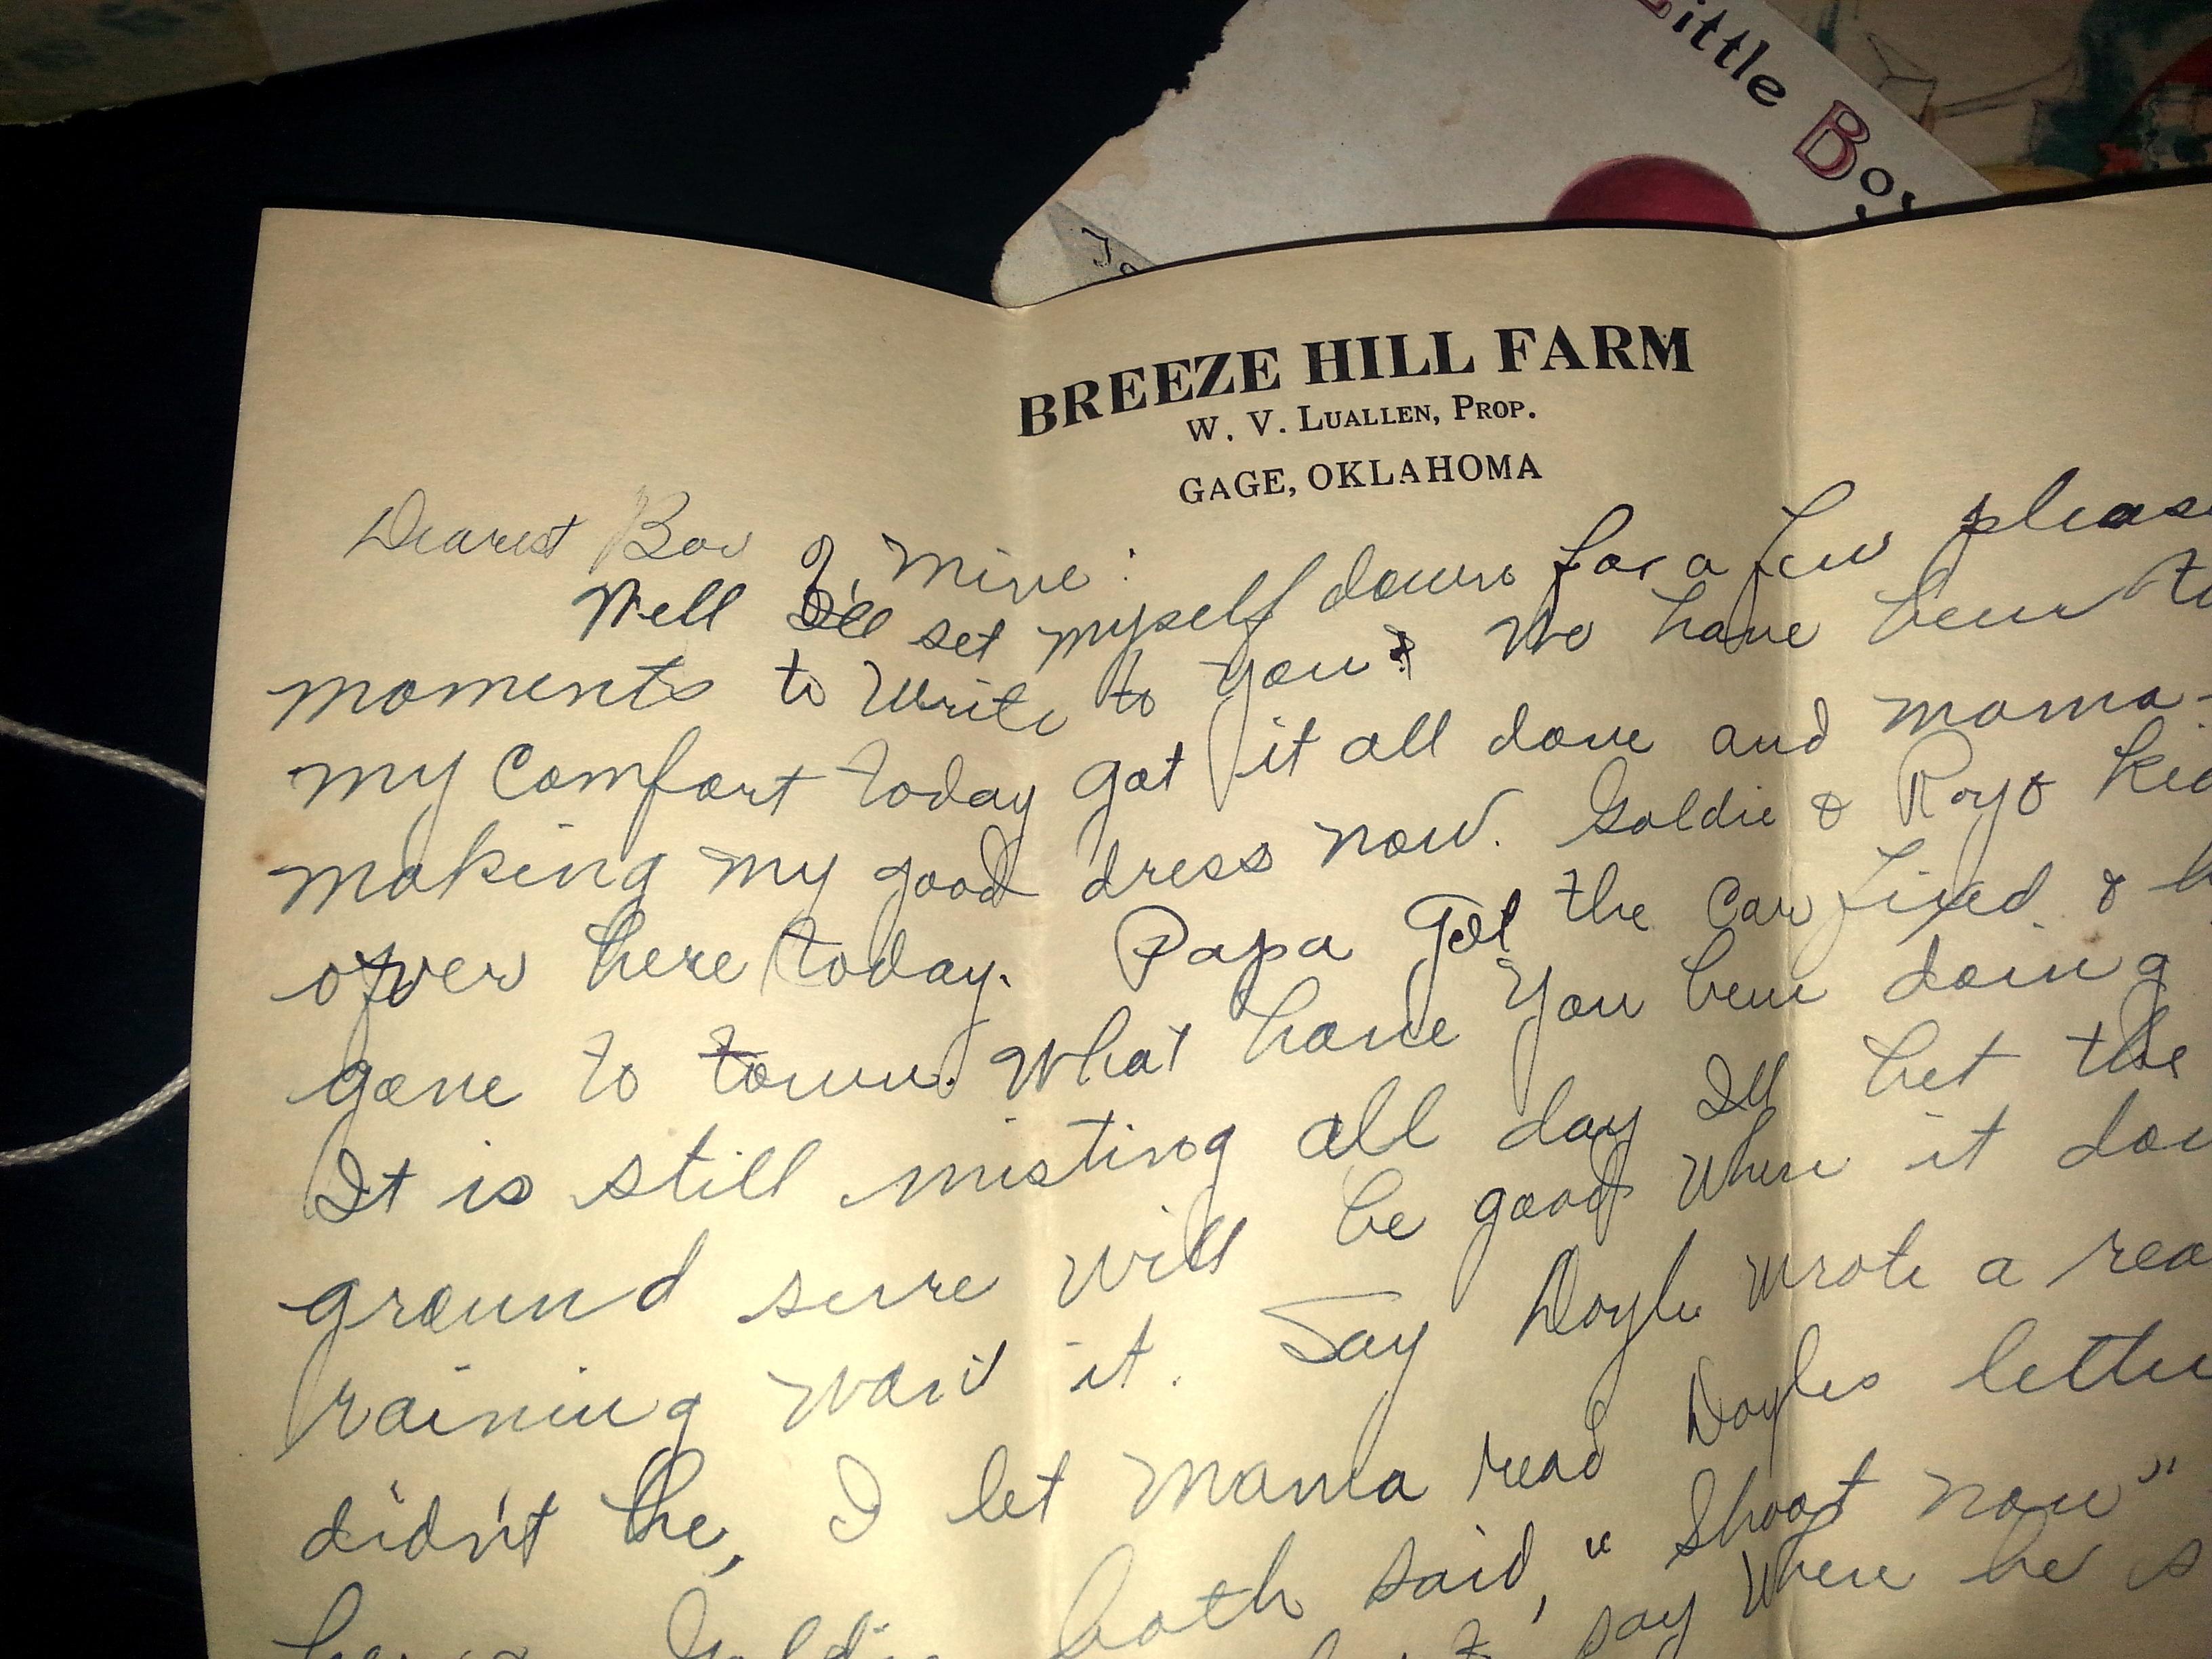 Little
BREEZE HILL FARM
W. V. LUALLEN, PROP.
GAGE, OKLAHOMA
Dearest Boy of mine:
Well I'll set myself down for a few
moments to write to you. We have been
my comfort today got it all done and mama
making my good dress now. Goldie & Roy &
over here today. Papa got the car fixed &
gone to town. What have you been doing
It is still misting all day Ill bet the
ground sure will be good when it
raining won't it. Say Doyle wrote a
didn't he, I let Mama read Doyles
both said, "Shoot now"
say where he is